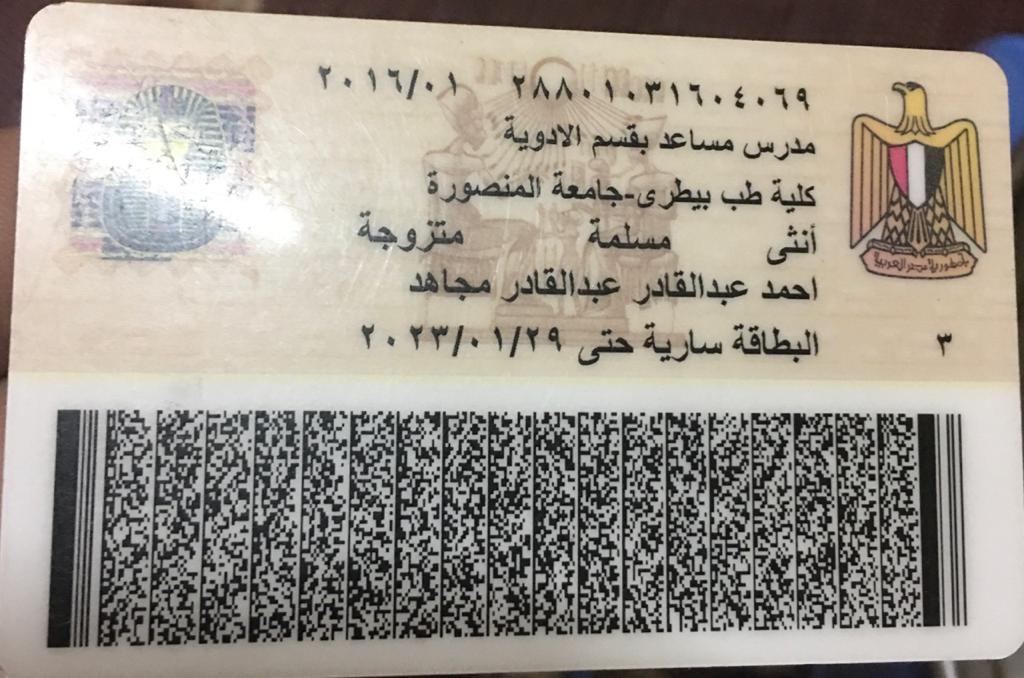 ٢٨٨٠١٠٣١٦٠٤٠٦٩ ٢٠١٦/٠١
مدرس مساعد بقسم الادوية
كلية طب بيطرى-جامعة المنصورة
أنثى مسلمة متزوجة
احمد عبدالقادر عبدالقادر مجاهد
٣ البطاقة سارية حتى ٢٠٢٣/٠١/٢٩
جمهورية مصر العربية